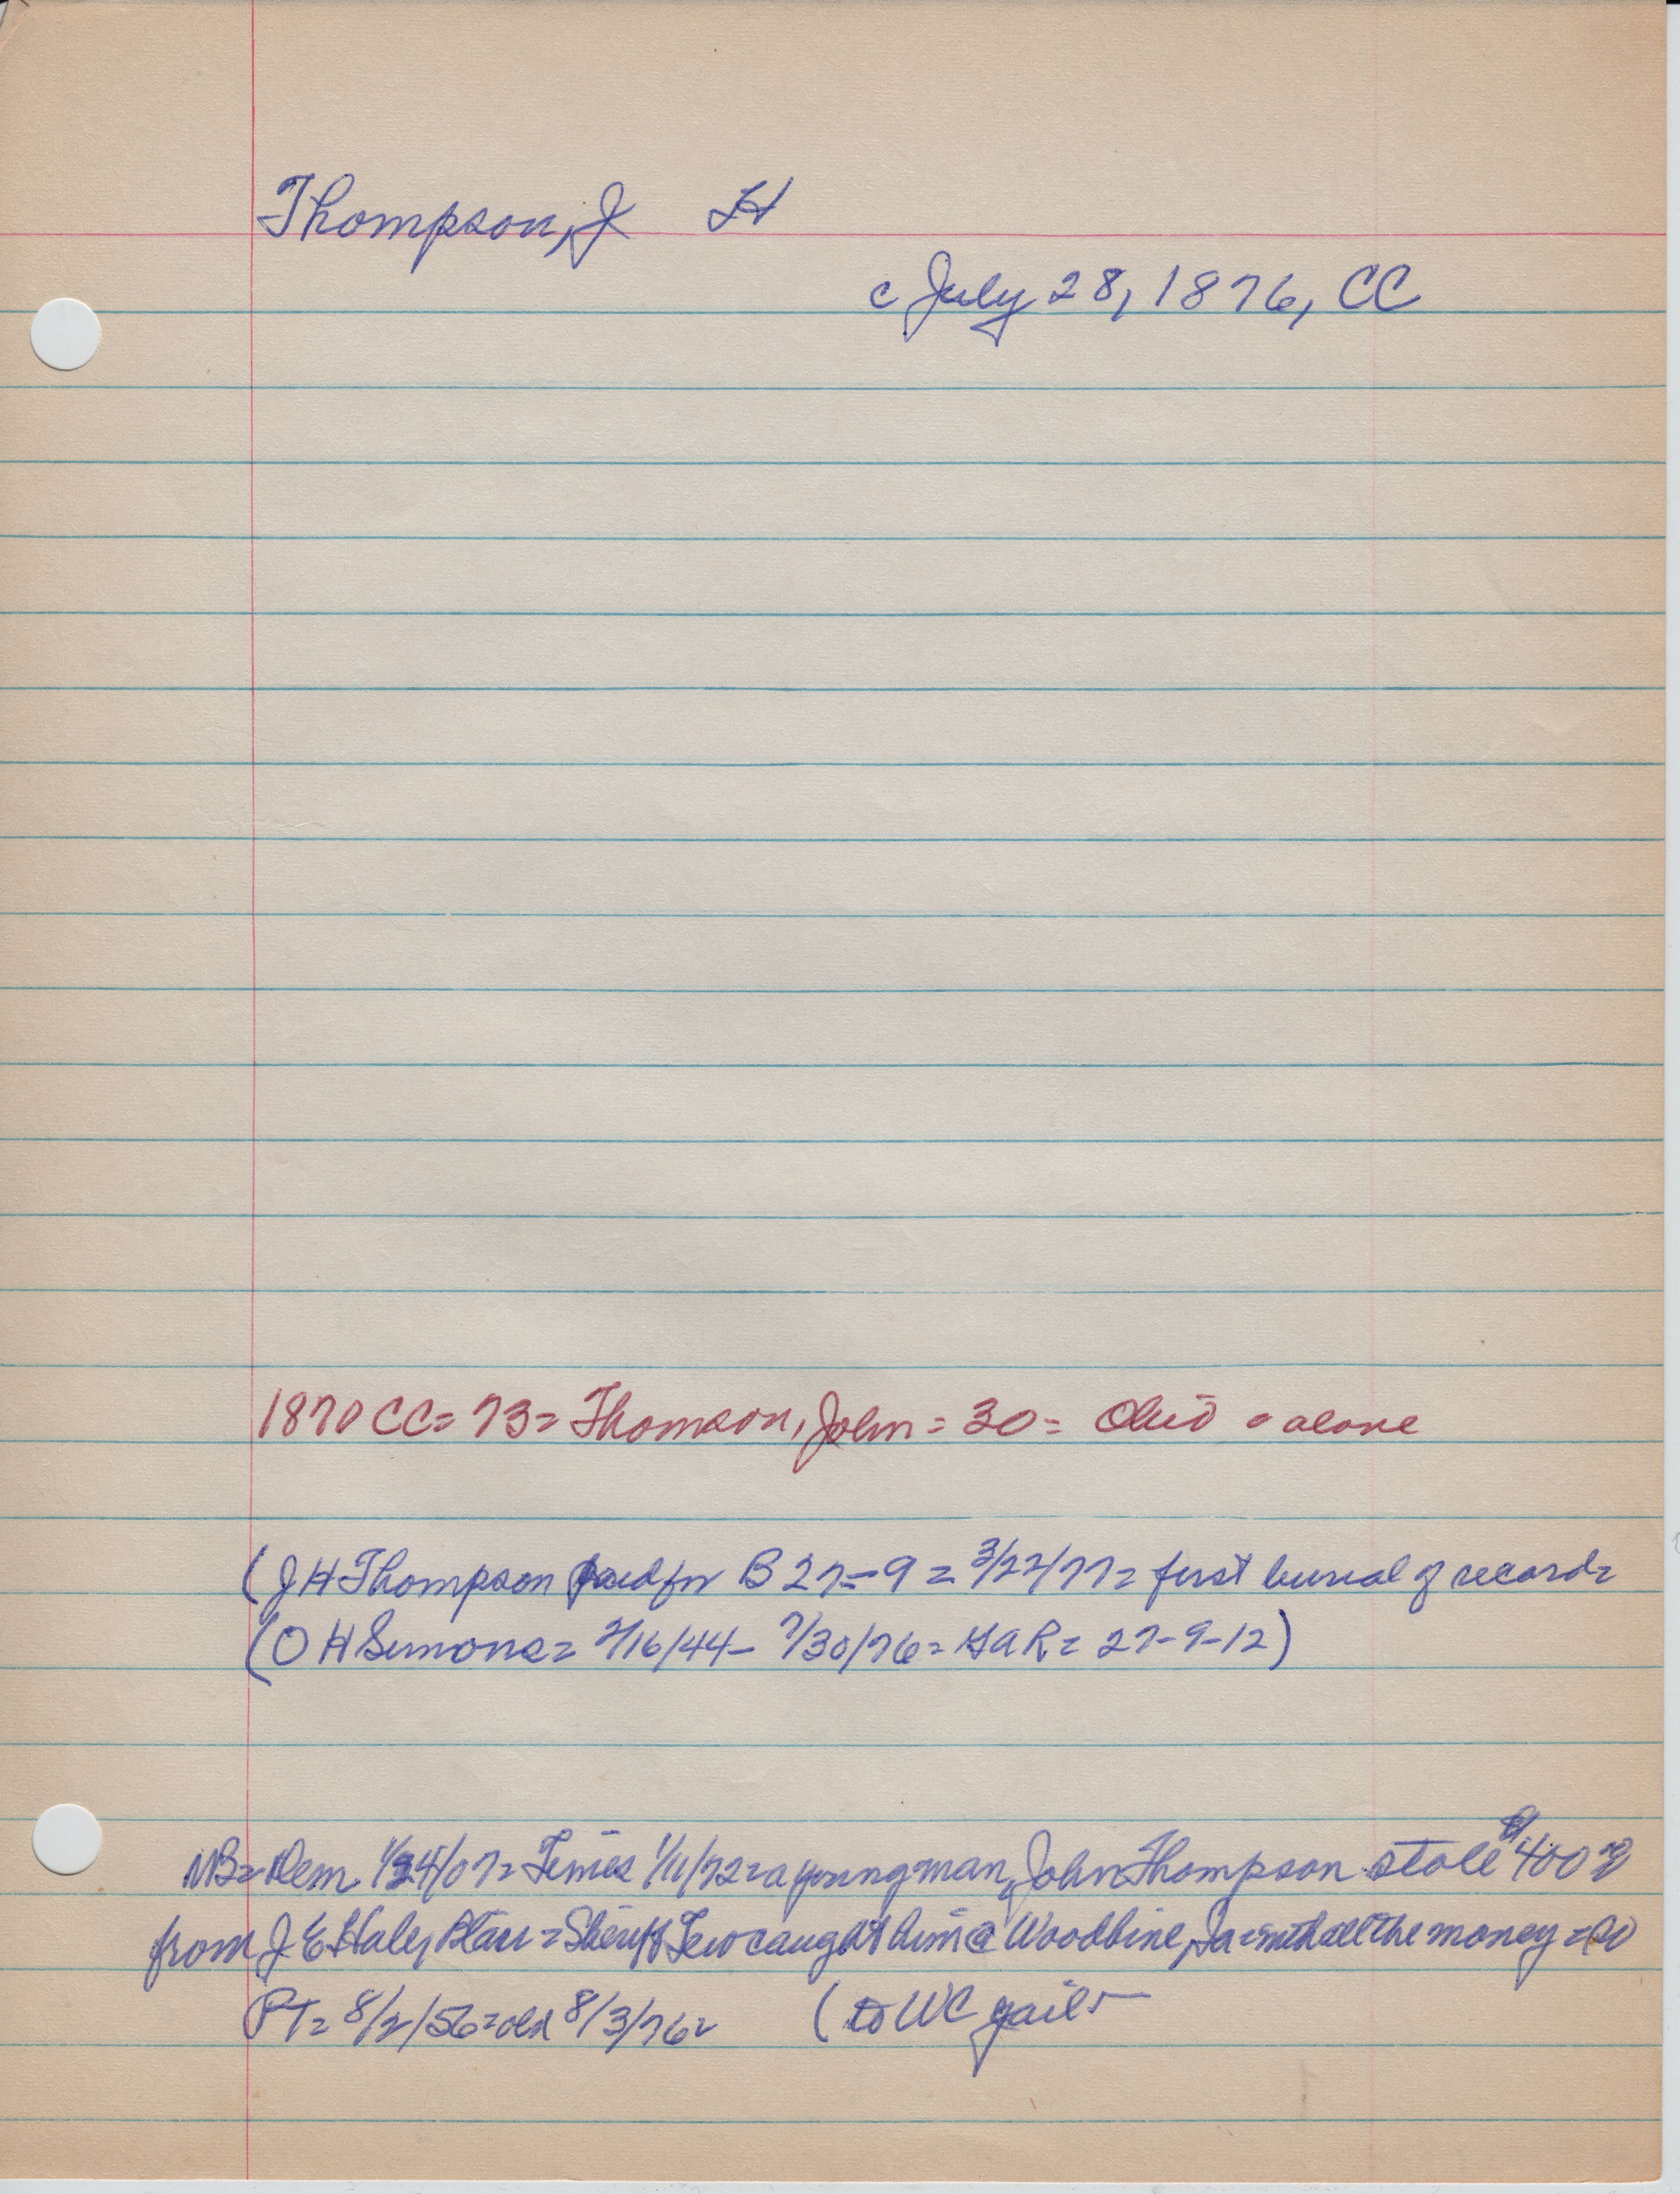 Thompson, J H
c July 28, 1876, CC
1870 CC= 73= Thomson, John = 30 = Ohio = alone
(J H Thompson paid for B 27-9 = 3/22/77= first burial of record=
(O H Simons= 2/16/44- 7/30/76= GAR= 27-9-12)
NB= Dem. 1/24/07= Times 1/11/72= a young man, John Thompson stole $400
from J. E. Haley, Blair = Sheriff caught him @ Woodbine, Ia = with all the money =
PT= 8/2/56=old 8/3/76= (to WC jail-